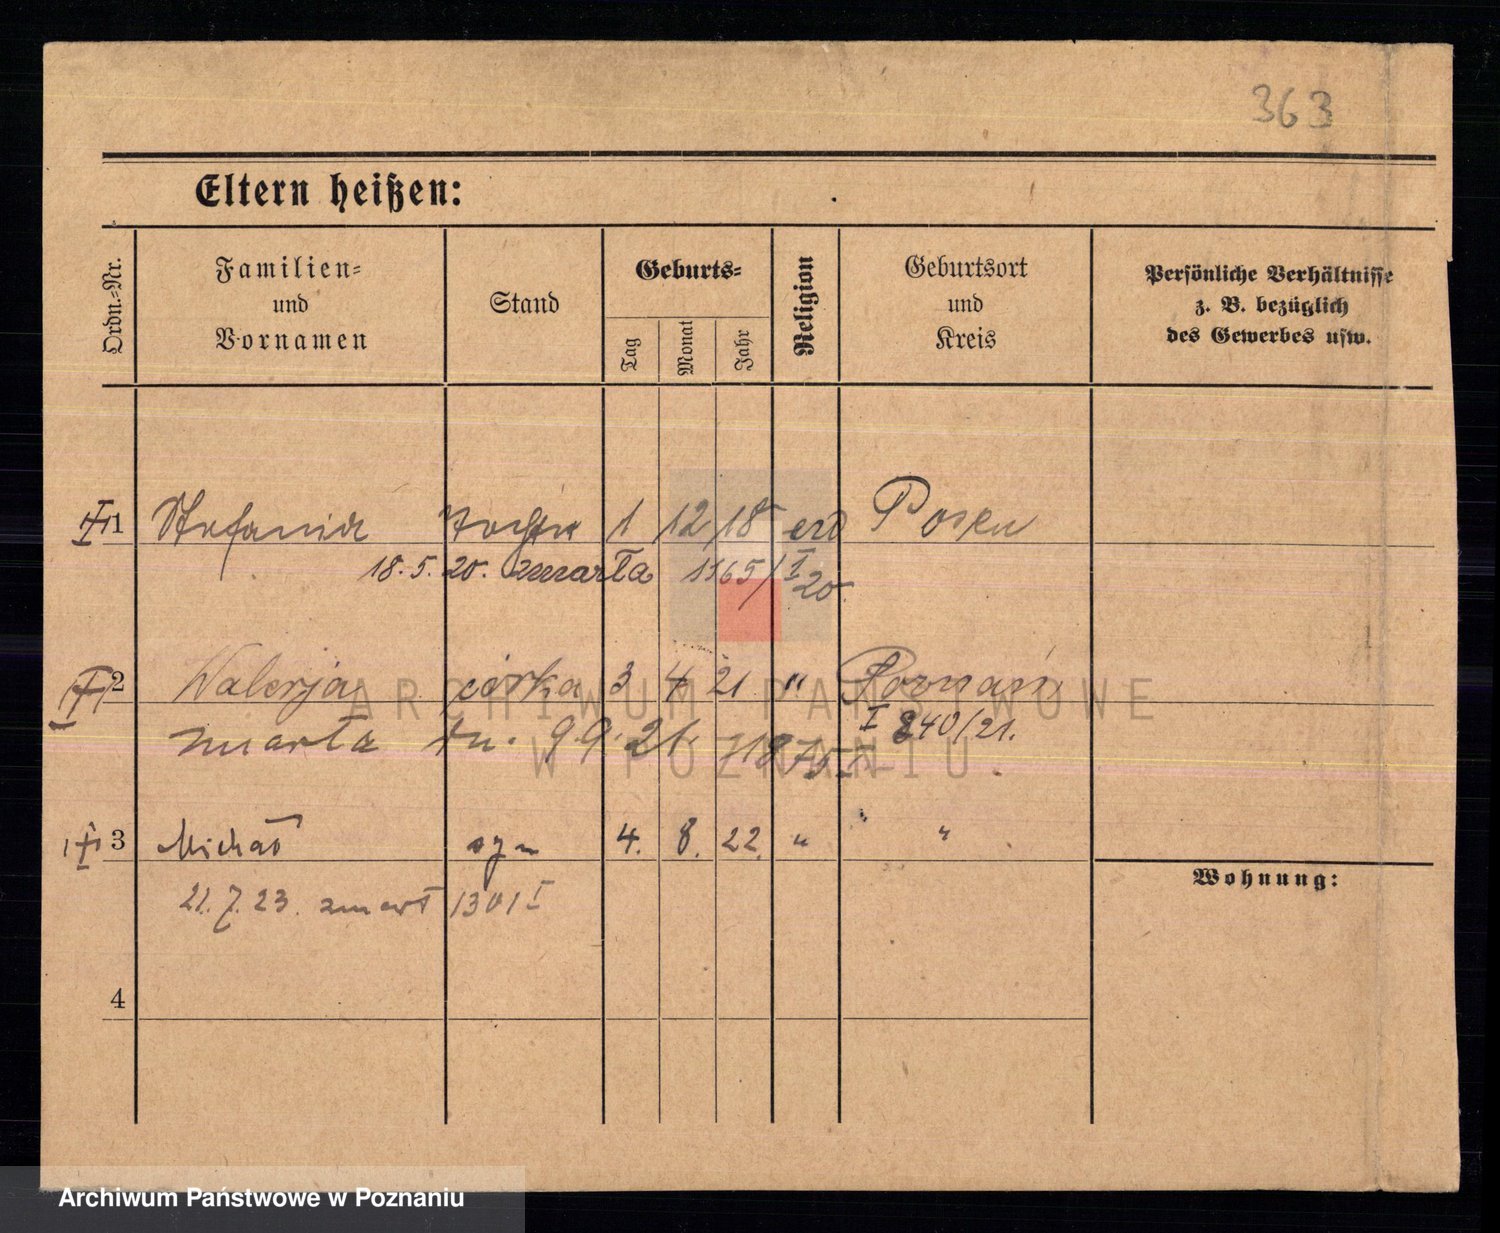 363
Eltern heißen:
Ordn.-Nr.
Familien-
und
Vornamen
Stand
Geburts-
Tag
Monat
Jahr
Religion
Geburtsort
und
Kreis
Persönliche Verhältnisse
z. B. bezüglich
des Gewerbes usw.
1 Stefania Tochter 1 12 18 Posen
18. 5. 20. zmarła 1165/I 20.
2 Walerja córka 3 4 21 " Poznań
I 840/21.
zmarła dn. 9.9. 21.
3 Michał syn 4. 8. 22. " " "
21. 7. 23. zmarł 1301 I
Wohnung:
4
ARCHIWUM PAŃSTWOWE
W POZNANIU
Archiwum Państwowe w Poznaniu